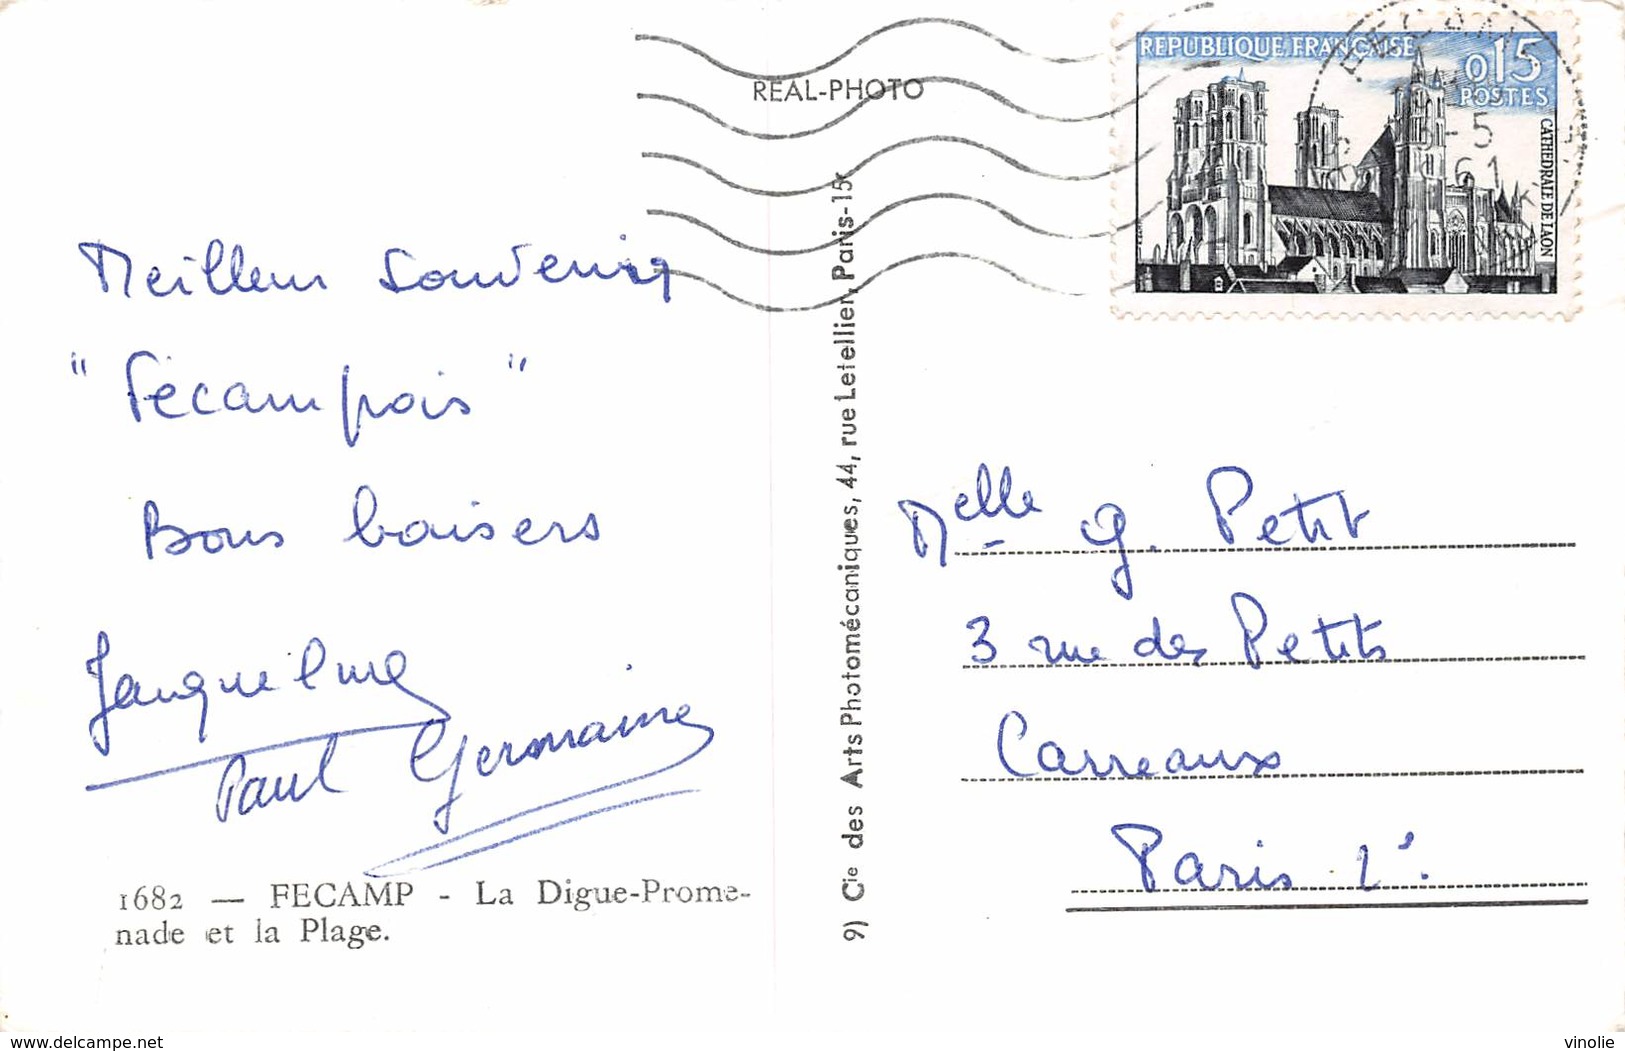 REAL-PHOTO
REPUBLIQUE FRANÇAISE
0,15
POSTES
CATHÉDRALE DE LAON
FECAMP
-5
61
Meilleurs Souvenirs
"Fécampois"
Bons baisers
Jacqueline
Paul Germaine
1682 — FECAMP - La Digue-Prome-
nade et la Plage.
9) Cie des Arts Photomécaniques, 44, rue Letellier, Paris-15e
Melle G. Petit
3 rue des Petits
Carreaux
Paris 2e.
www.delcampe.net
vinolie